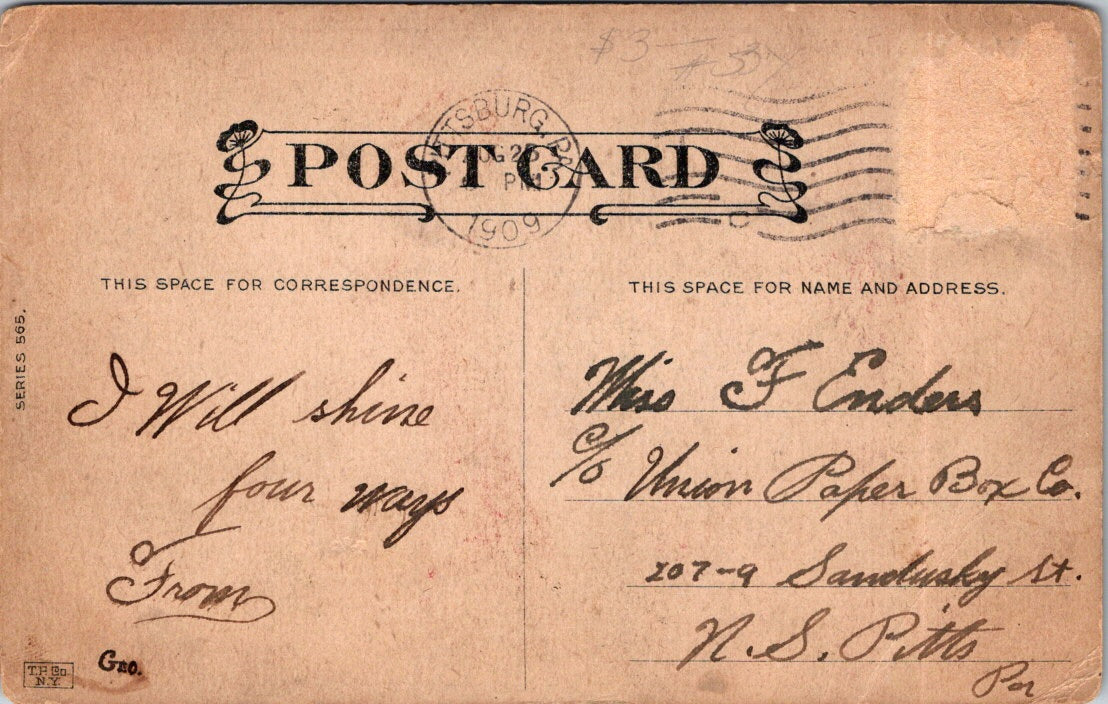 $3
POST CARD
PITTSBURG, PA.
AUG 25
PM
1909
C
THIS SPACE FOR CORRESPONDENCE.
THIS SPACE FOR NAME AND ADDRESS.
SERIES 565.
I Will shine
four ways
From
Geo.
T.P. Co.
N.Y.
Miss F Enders
c/o Union Paper Box Co.
207-9 Sandusky St.
N. S. Pitts
Pa